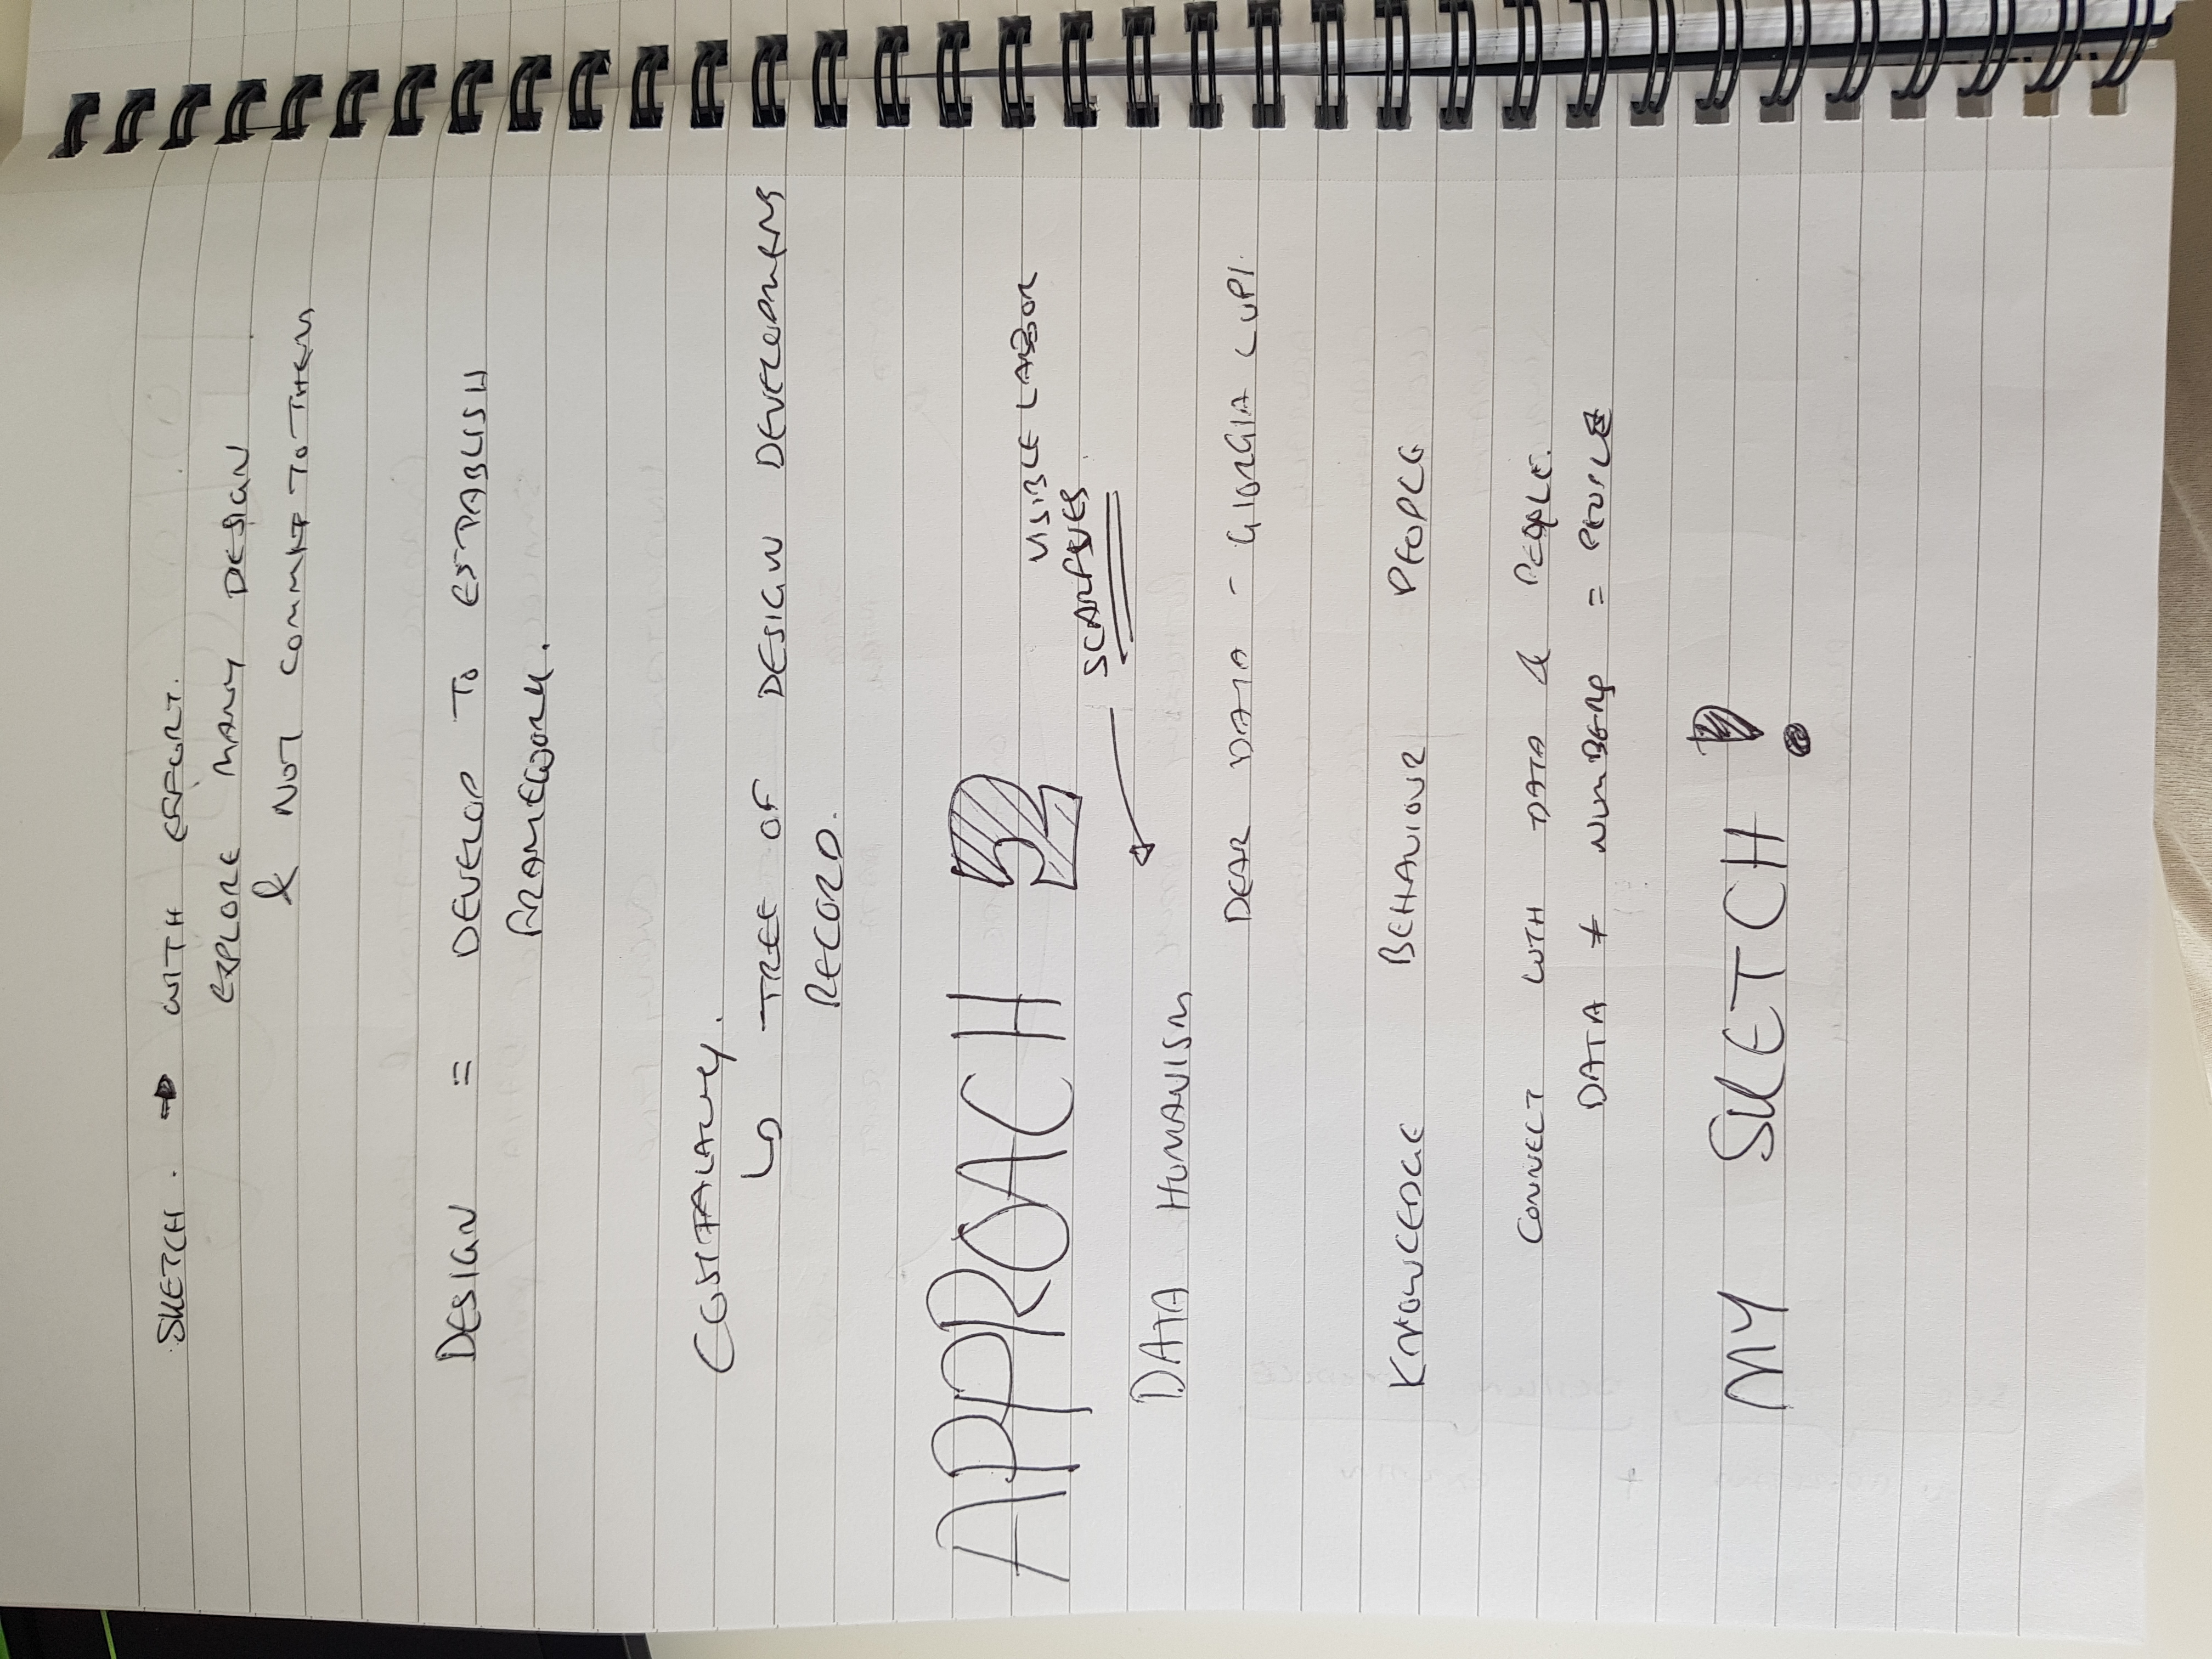 SKETCH. → WITH EFFORT.
EXPLORE MANY DESIGN
& NOT COMMIT TO THEM
DESIGN = DEVELOP TO ESTABLISH
FRAMEWORK.
↳ TREE OF DESIGN DEVELOPMENT
RECORD.
APPROACH 2
VISIBLE LABOR
DATA HUMANISM
DEAR DATA - GIORGIA LUPI.
KNOWLEDGE BEHAVIOUR PEOPLE
CONNECT WITH DATA & PEOPLE.
DATA ≠ NUMBERS = PEOPLE
MY SKETCH !